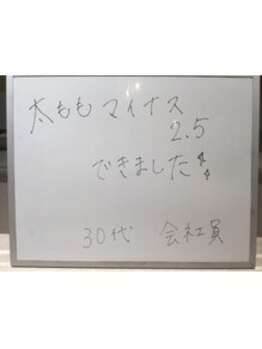 太ももマイナス
2.5
できました!!
30代 会社員